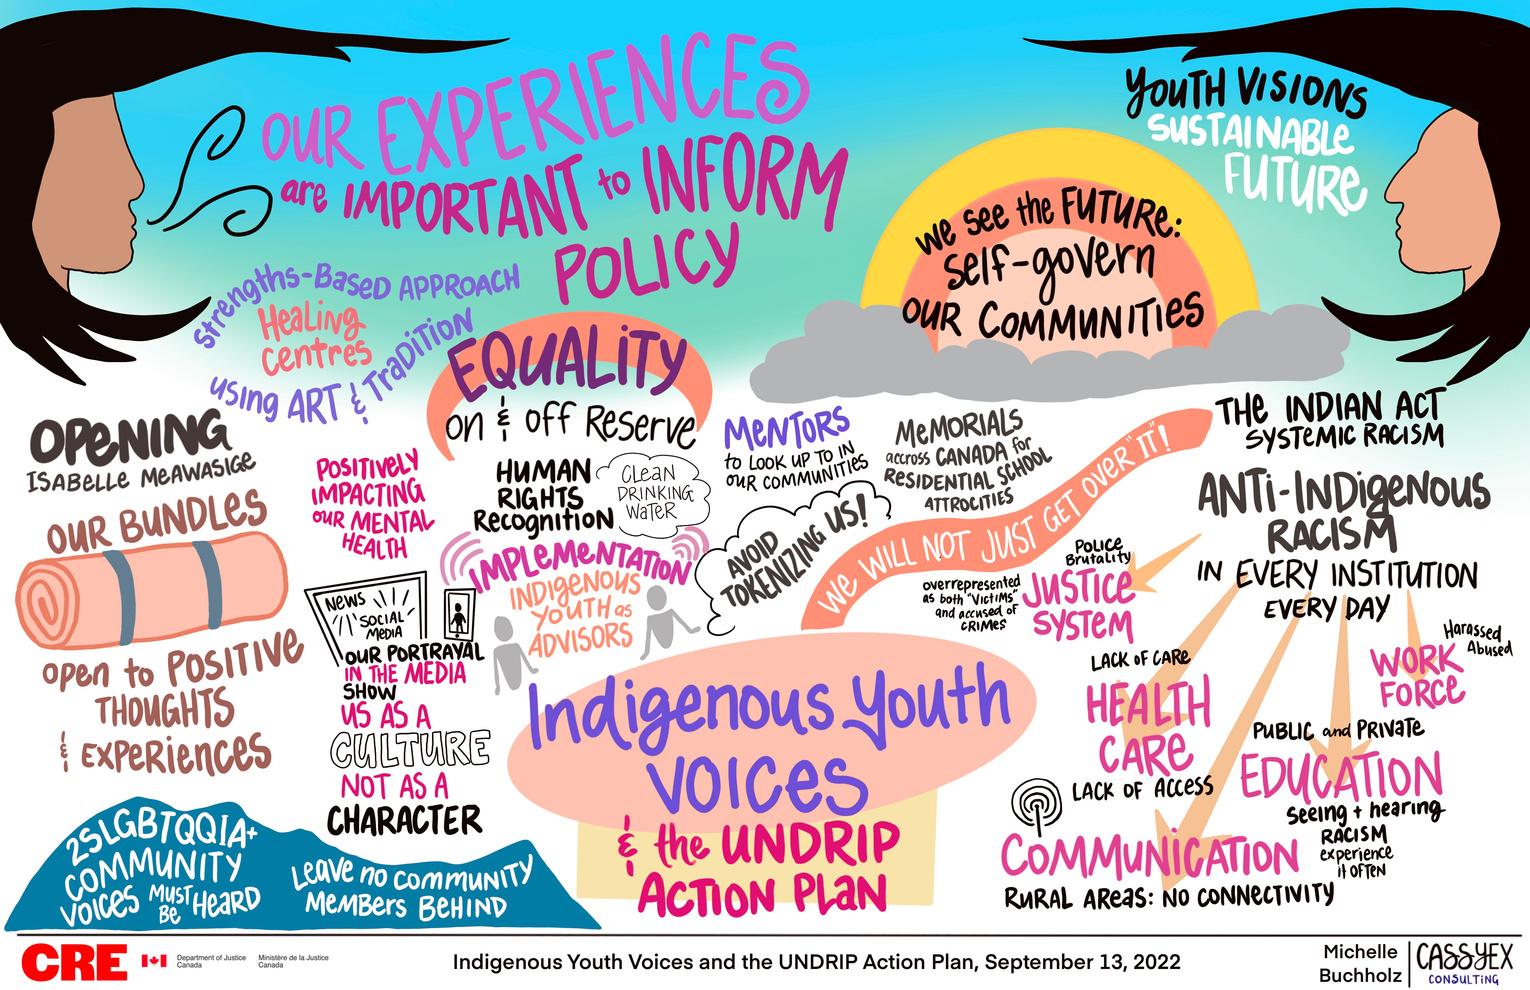 OUR EXPERIENCES
are IMPORTANT to INFORM
POLICY
YOUTH VISIONS
SUSTAINABLE
FUTURE
we see the FUTURE:
self-govern
OUR COMMUNITIES
strengths-Based APPROACH
Healing
centres
using ART & TRADITION
EQUALITY
on & off Reserve
OPENING
ISABELLE MEAWASIGE
OUR BUNDLES
open to POSITIVE
THOUGHTS
& EXPERIENCES
POSITIVELY
IMPACTING
OUR MENTAL
HEALTH
HUMAN
RIGHTS
Recognition
CLEAN
DRINKING
WATER
IMPLEMENTATION
INDIGENOUS
YOUTH as
ADVISORS
MENTORS
to LOOK UP TO IN
OUR COMMUNITIES
MEMORIALS
accross CANADA for
RESIDENTIAL SCHOOL
ATTROCITIES
AVOID
TOKENIZING US!
WE WILL NOT JUST GET OVER "IT"!
THE INDIAN ACT
SYSTEMIC RACISM
ANTI-INDIGENOUS
RACISM
IN EVERY INSTITUTION
EVERY DAY
POLICE
BRUTALITY
JUSTICE
SYSTEM
overrepresented
as both "VICTIMS"
and accused of
CRIMES
LACK OF CARE
HEALTH
CARE
LACK OF ACCESS
Harassed
Abused
WORK
FORCE
PUBLIC and PRIVATE
EDUCATION
seeing + hearing
RACISM
experience
it OFTEN
COMMUNICATION
RURAL AREAS: NO CONNECTIVITY
NEWS
SOCIAL
MEDIA
OUR PORTRAYAL
IN THE MEDIA
SHOW
US AS A
CULTURE
NOT AS A
CHARACTER
Indigenous Youth
VOICES
& the UNDRIP
ACTION PLAN
2SLGBTQQIA+
COMMUNITY
VOICES MUST BE HEARD
Leave no COMMUNITY
MEMBERS BEHIND
CRE
Department of Justice Canada
Ministère de la Justice Canada
Indigenous Youth Voices and the UNDRIP Action Plan, September 13, 2022
Michelle
Buchholz
CASSYEX
CONSULTING